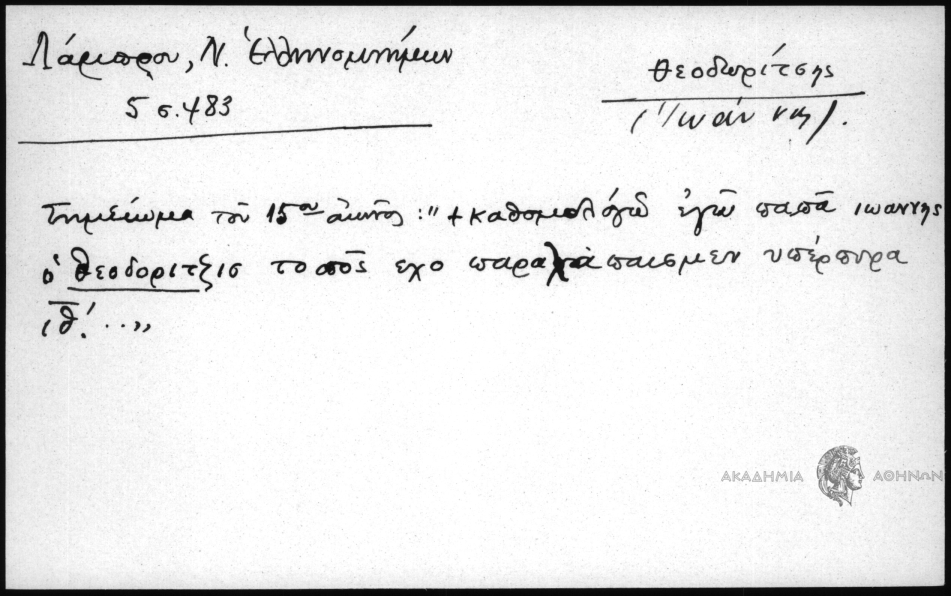 Λάμπρου, Ν. Ἑλληνομνήμων
5 σ. 483
Θεοδωρίτσης
(Ἰωάννης).
Σημείωμα τοῦ 15ου αἰῶνος: "+ καθομολόγῶ ἐγῶ παπᾶ ιωαννης
ὁ θεοδοριτξισ το πῶς εχο παρα απ υπέρπυρα
ιθ! ..."
ΑΚΑΔΗΜΙΑ ΑΘΗΝΩΝ